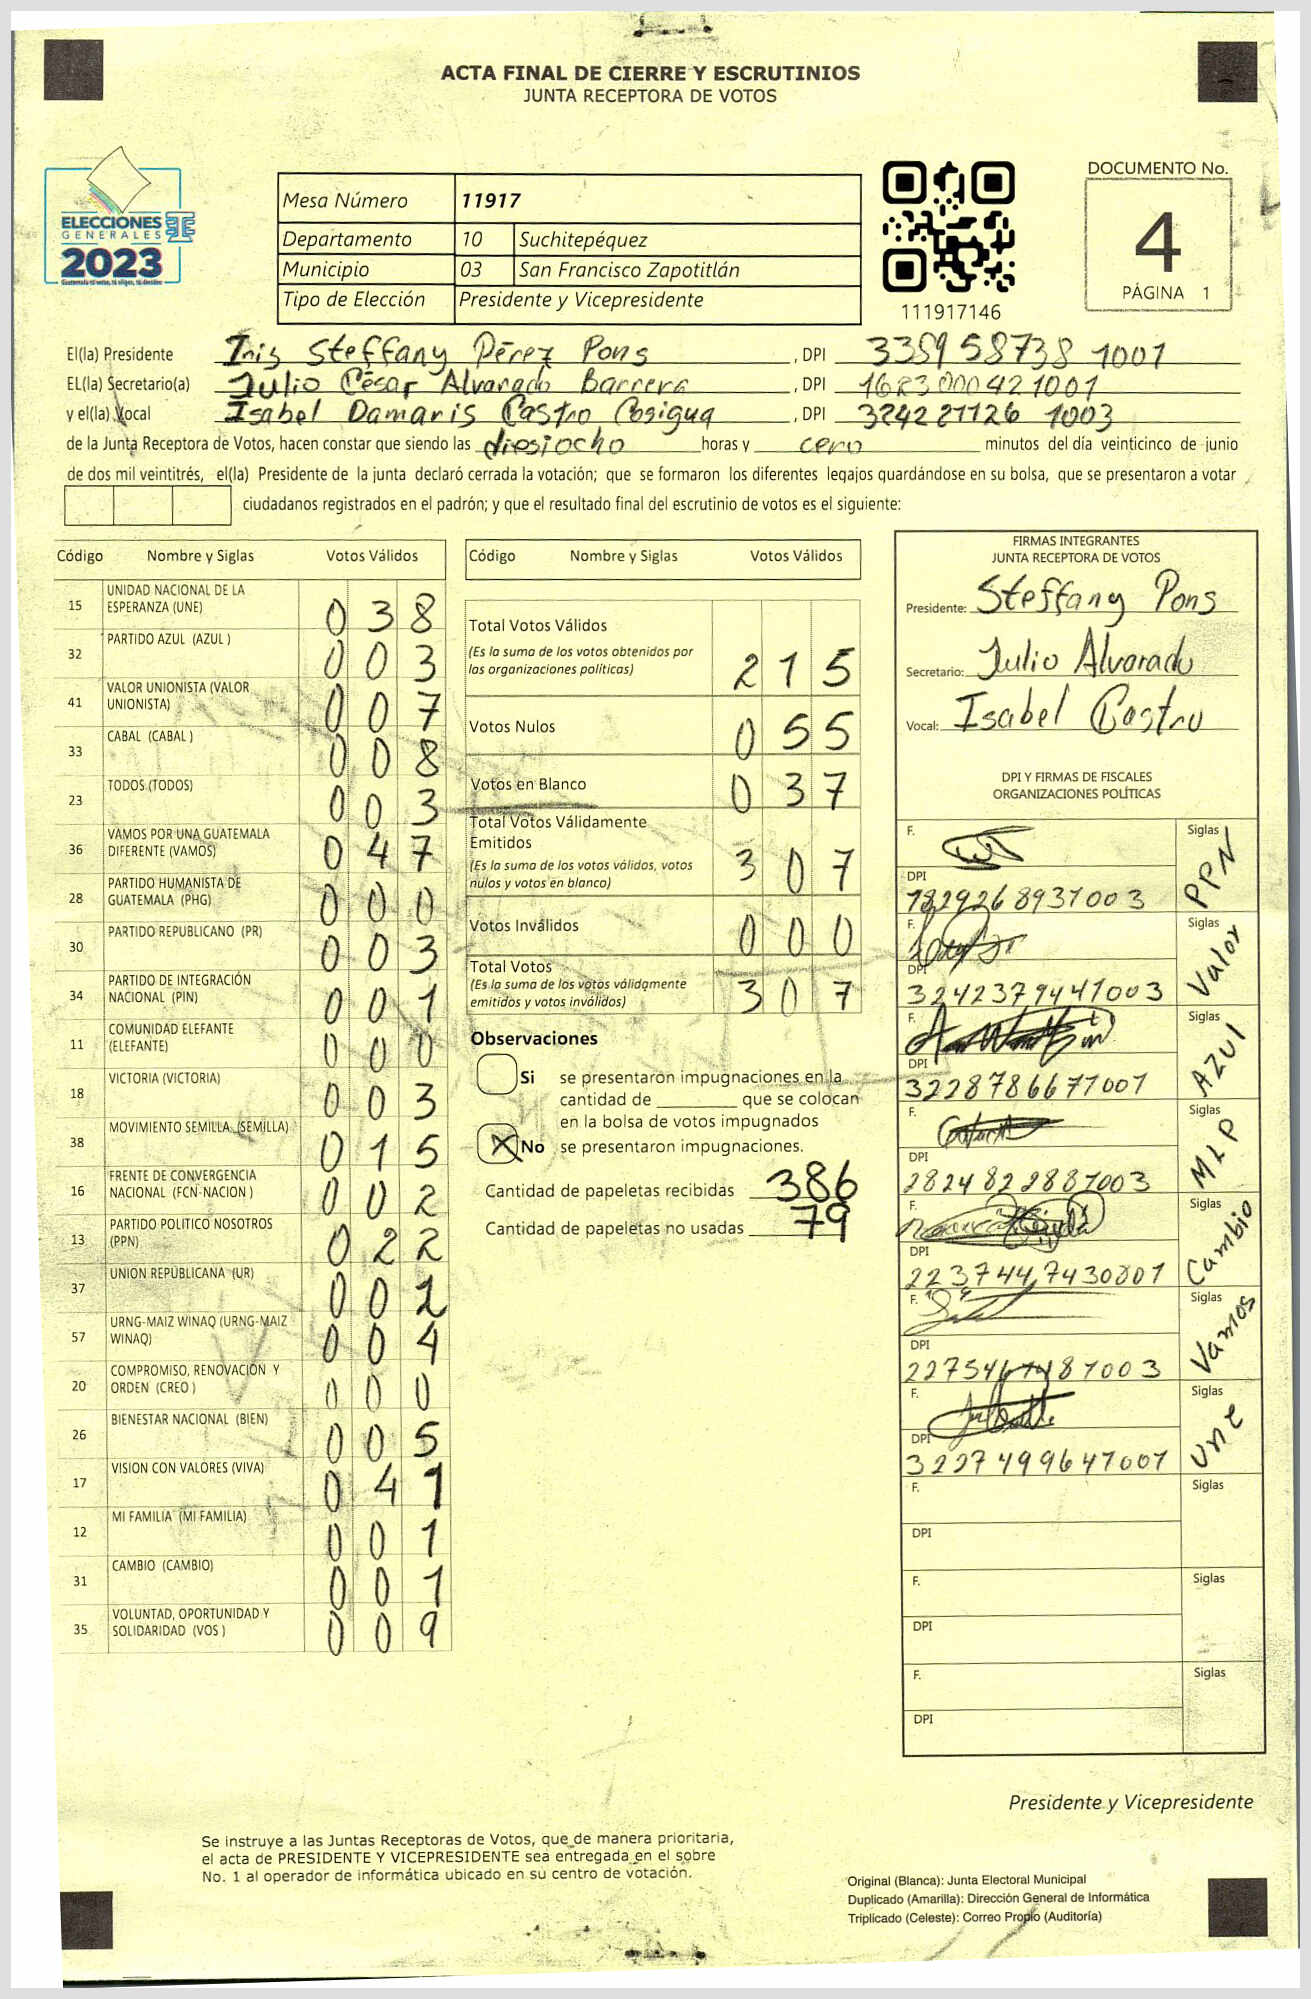 ACTA FINAL DE CIERRE Y ESCRUTINIOS
JUNTA RECEPTORA DE VOTOS
ELECCIONES
GENERALES
2023
Mesa Número 11917
Departamento 10 Suchitepéquez
Municipio 03 San Francisco Zapotitlán
Tipo de Elección Presidente y Vicepresidente
111917146
DOCUMENTO No.
4
PÁGINA 1
El(la) Presidente Inis Steffany Pérez Pons, DPI 3359 58738 1001
EL(la) Secretario(a) Julio César Alvarado Barrera, DPI 1623000421001
y el(la) Vocal Isabel Damaris Castro Cosigua, DPI 324221126 1003
de la Junta Receptora de Votos, hacen constar que siendo las diesiocho horas y cero minutos del día veinticinco de junio
de dos mil veintitrés, el(la) Presidente de la junta declaró cerrada la votación; que se formaron los diferentes legajos guardándose en su bolsa, que se presentaron a votar
ciudadanos registrados en el padrón; y que el resultado final del escrutinio de votos es el siguiente:
Código Nombre y Siglas Votos Válidos
15 UNIDAD NACIONAL DE LA ESPERANZA (UNE) 0 3 8
32 PARTIDO AZUL (AZUL ) 0 0 3
41 VALOR UNIONISTA (VALOR UNIONISTA) 0 0 7
33 CABAL (CABAL ) 0 0 8
23 TODOS (TODOS) 0 0 3
36 VAMOS POR UNA GUATEMALA DIFERENTE (VAMOS) 0 4 7
28 PARTIDO HUMANISTA DE GUATEMALA (PHG) 0 0 0
30 PARTIDO REPUBLICANO (PR) 0 0 3
34 PARTIDO DE INTEGRACIÓN NACIONAL (PIN) 0 0 1
11 COMUNIDAD ELEFANTE (ELEFANTE) 0 0 0
18 VICTORIA (VICTORIA) 0 0 3
38 MOVIMIENTO SEMILLA (SEMILLA) 0 1 5
16 FRENTE DE CONVERGENCIA NACIONAL (FCN-NACION ) 0 0 2
13 PARTIDO POLITICO NOSOTROS (PPN) 0 2 2
37 UNION REPUBLICANA (UR) 0 0 2
57 URNG-MAIZ WINAQ (URNG-MAIZ WINAQ) 0 0 4
20 COMPROMISO, RENOVACIÓN Y ORDEN (CREO ) 0 0 0
26 BIENESTAR NACIONAL (BIEN) 0 0 5
17 VISION CON VALORES (VIVA) 0 4 1
12 MI FAMILIA (MI FAMILIA) 0 0 1
31 CAMBIO (CAMBIO) 0 0 1
35 VOLUNTAD, OPORTUNIDAD Y SOLIDARIDAD (VOS ) 0 0 9
Código Nombre y Siglas Votos Válidos
Total Votos Válidos
(Es la suma de los votos obtenidos por
las organizaciones políticas) 2 1 5
Votos Nulos 0 5 5
Votos en Blanco 0 3 7
Total Votos Válidamente
Emitidos
(Es la suma de los votos válidos, votos
nulos y votos en blanco) 3 0 7
Votos Inválidos 0 0 0
Total Votos
(Es la suma de los votos válidamente
emitidos y votos inválidos) 3 0 7
Observaciones
Si se presentaron impugnaciones en la
cantidad de ________ que se colocan
en la bolsa de votos impugnados
X No se presentaron impugnaciones.
Cantidad de papeletas recibidas 386
Cantidad de papeletas no usadas 79
FIRMAS INTEGRANTES
JUNTA RECEPTORA DE VOTOS
Presidente: Steffany Pons
Secretario: Julio Alvarado
Vocal: Isabel Castro
DPI Y FIRMAS DE FISCALES
ORGANIZACIONES POLÍTICAS
F. Siglas PPN
DPI
1829268931003
F. Siglas Valor
DPI
3242379441003
F. Siglas AZUL
DPI
3228786671001
F. Siglas MLP
DPI
2824822881003
F. Siglas Cambio
DPI
2237447430801
F. Siglas Vamos
DPI
F. Siglas Une
DPI
3227499641001
F. Siglas
DPI
F. Siglas
DPI
F. Siglas
DPI
Presidente y Vicepresidente
Se instruye a las Juntas Receptoras de Votos, que de manera prioritaria,
el acta de PRESIDENTE Y VICEPRESIDENTE sea entregada en el sobre
No. 1 al operador de informática ubicado en su centro de votación.
Original (Blanca): Junta Electoral Municipal
Duplicado (Amarilla): Dirección General de Informática
Triplicado (Celeste): Correo Propio (Auditoría)